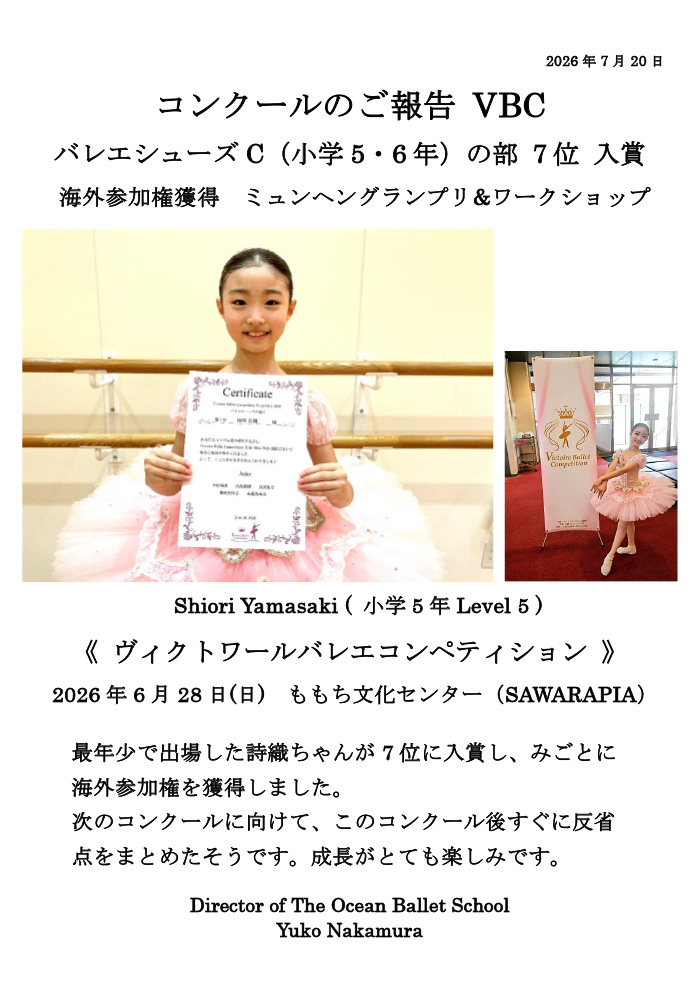 2026年7月20日
コンクールのご報告 VBC
バレエシューズC（小学5・6年）の部 7位 入賞
海外参加権獲得　ミュンヘングランプリ&ワークショップ
Certificate
Judge
Victoire Ballet
Competition
Shiori Yamasaki ( 小学5年 Level 5 )
《 ヴィクトワールバレエコンペティション 》
2026年6月28日(日)　ももち文化センター（SAWARAPIA）
最年少で出場した詩織ちゃんが7位に入賞し、みごとに
海外参加権を獲得しました。
次のコンクールに向けて、このコンクール後すぐに反省
点をまとめたそうです。成長がとても楽しみです。
Director of The Ocean Ballet School
Yuko Nakamura